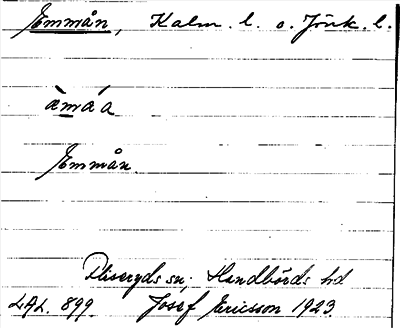 Emmån, Kalm. l. o. Jönk. l.
æ̀máa
Emmån.
Fliseryds sn. Handbörds hd
LAL. 899. Josef Ericsson 1923